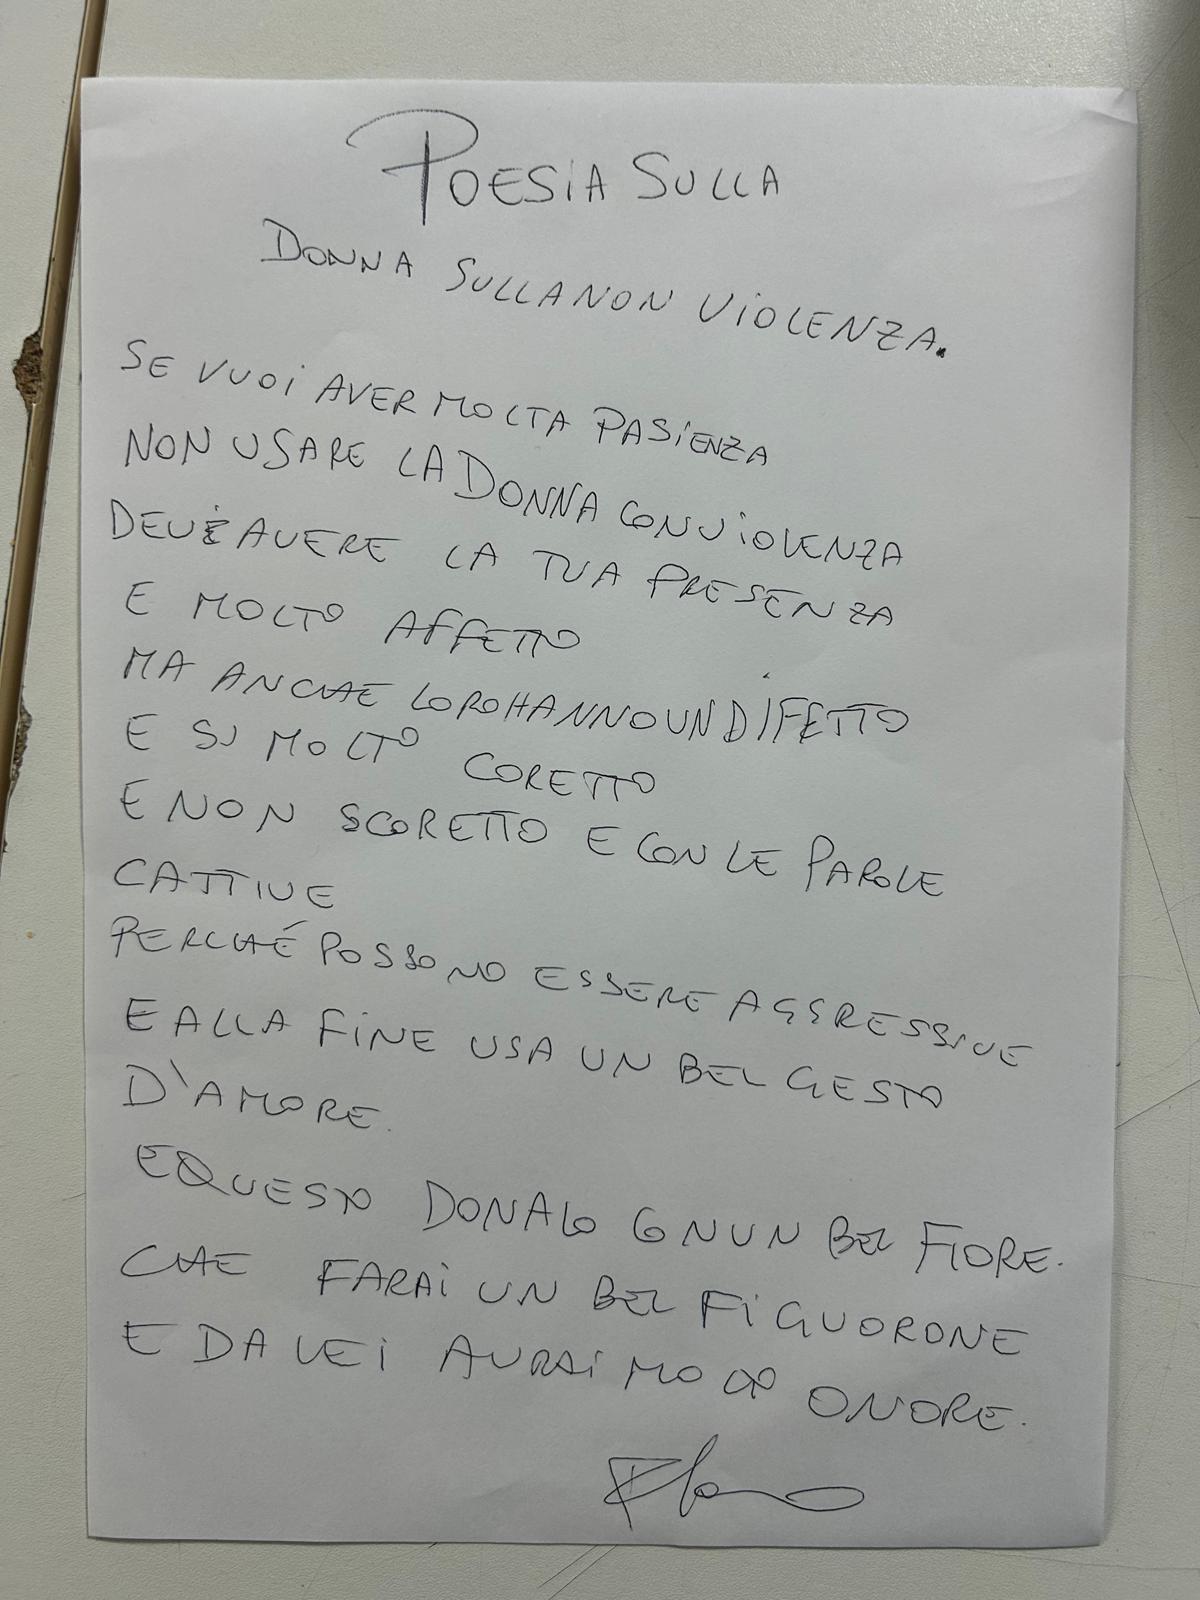 POESIA SULLA
DONNA SULLA NON VIOLENZA.
SE VUOI AVER MOLTA PASIENZA
NON USARE LA DONNA CON VIOLENZA
DEVE AVERE LA TUA PRESENZA
E MOLTO AFFETTO
MA ANCHE LORO HANNO UN DIFETTO
E SI MOLTO CORETTO
E NON SCORETTO E CON LE PAROLE
CATTIVE
PERCHÉ POSSONO ESSERE AGGRESSIVE
E ALLA FINE USA UN BEL GESTO
D'AMORE.
E QUESTO DONALO CON UN BEL FIORE.
CHE FARAI UN BEL FIGUORONE
E DA LEI AVRAI MOLTO ONORE.